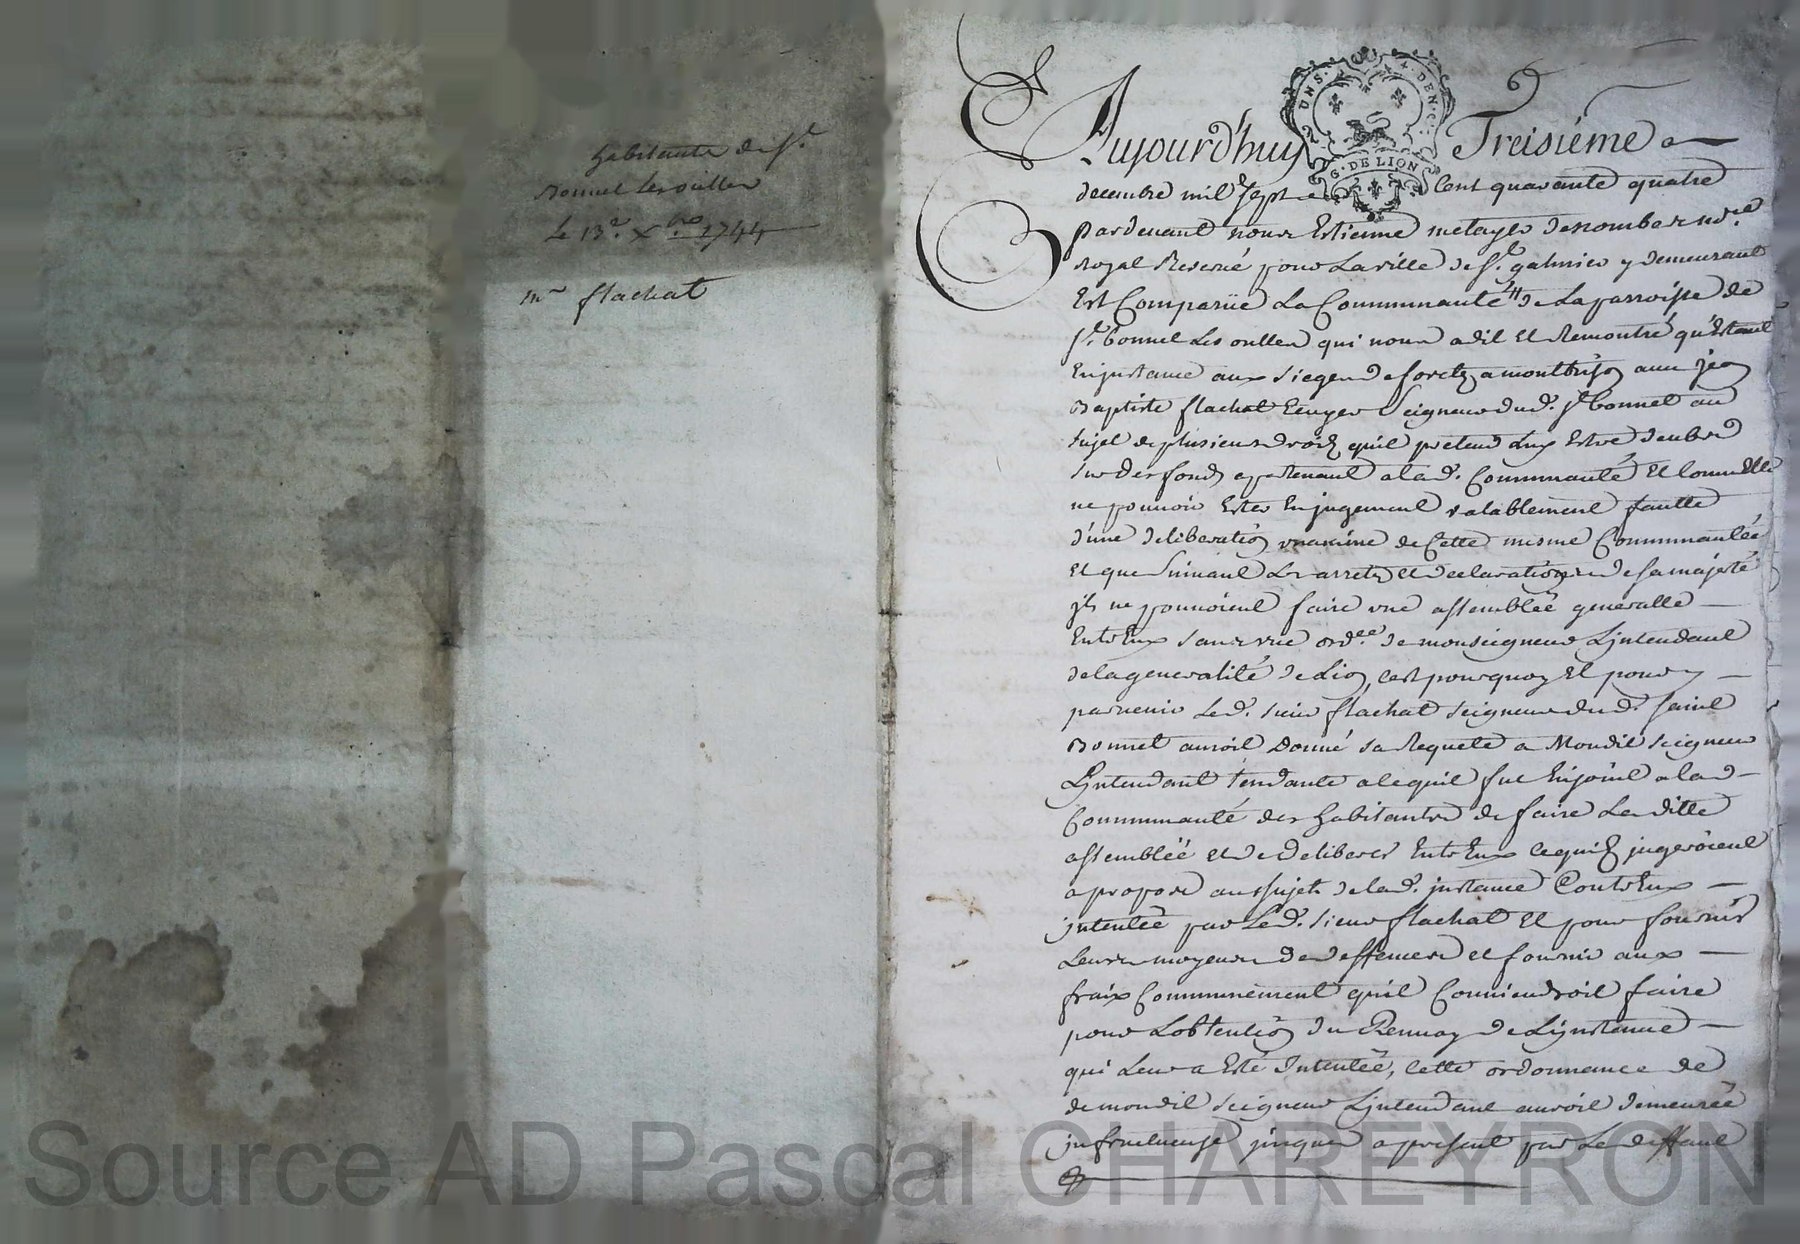 habitants de St
Bonnet les oulles
Le 13e Xbre 1744
mr flachat
UNS. + DEN.
G. DE LION
Aujourd'huy Treisiéme
decembre mil sept cent quarante quatre
Pardevant nous Estienne metayer no.re
Royal Reservé pour La ville de St. galmier y demeurant
Est Comparüe La Communauté de La parroisse de
St. bonnet Les oulles qui nous a dit Et Remontré qu'Estant
En jnstance aux sieges de forets a montbrison avec jean
Baptiste flachat Ecuyer Seigneur dud. St bonnet au
sujet de plusieurs droits quil pretend Luy Estre deubs
sur des fonds apartenant a lad. Communauté Et Comme Elle
ne pouvoir Ester En jugement valablement fautte
d'une deliberation unanime de Cette mesme Communautée
Et que suivant Les arrets et declarations de sa majesté
jls ne pouvoient faire une assemblée generalle
Entr'Eux sans une ord.ce de monseigneur L'jntendant
de la generalité de Lion, c'est pourquoy Et pour y
parvenir Led. sieur flachat seigneur dud. saint
Bonnet auroit donné sa Requete a Mondit seigneur
L'jntendant tendante a ce quil fut Enjoint a lad
Communauté des habitants de faire La ditte
assemblée et de deliberer Entr'Eux ce quils jugeroient
a propos au sujet de lad. jnstance Contr'Eux
jntentée par Led. sieur flachat Et pour fournir
Leurs moyens de deffences et fournir aux
fraix Communement quil Conviendroit faire
pour L'obtention du Renvoy de L'jnstance
qui Leur a Esté Intentée, Cette ordonnance de
de mondit seigneur L'jntendant auroit demeurée
jnfructueuse jusques a present par Le deffaut
Source AD Pascal CHAREYRON